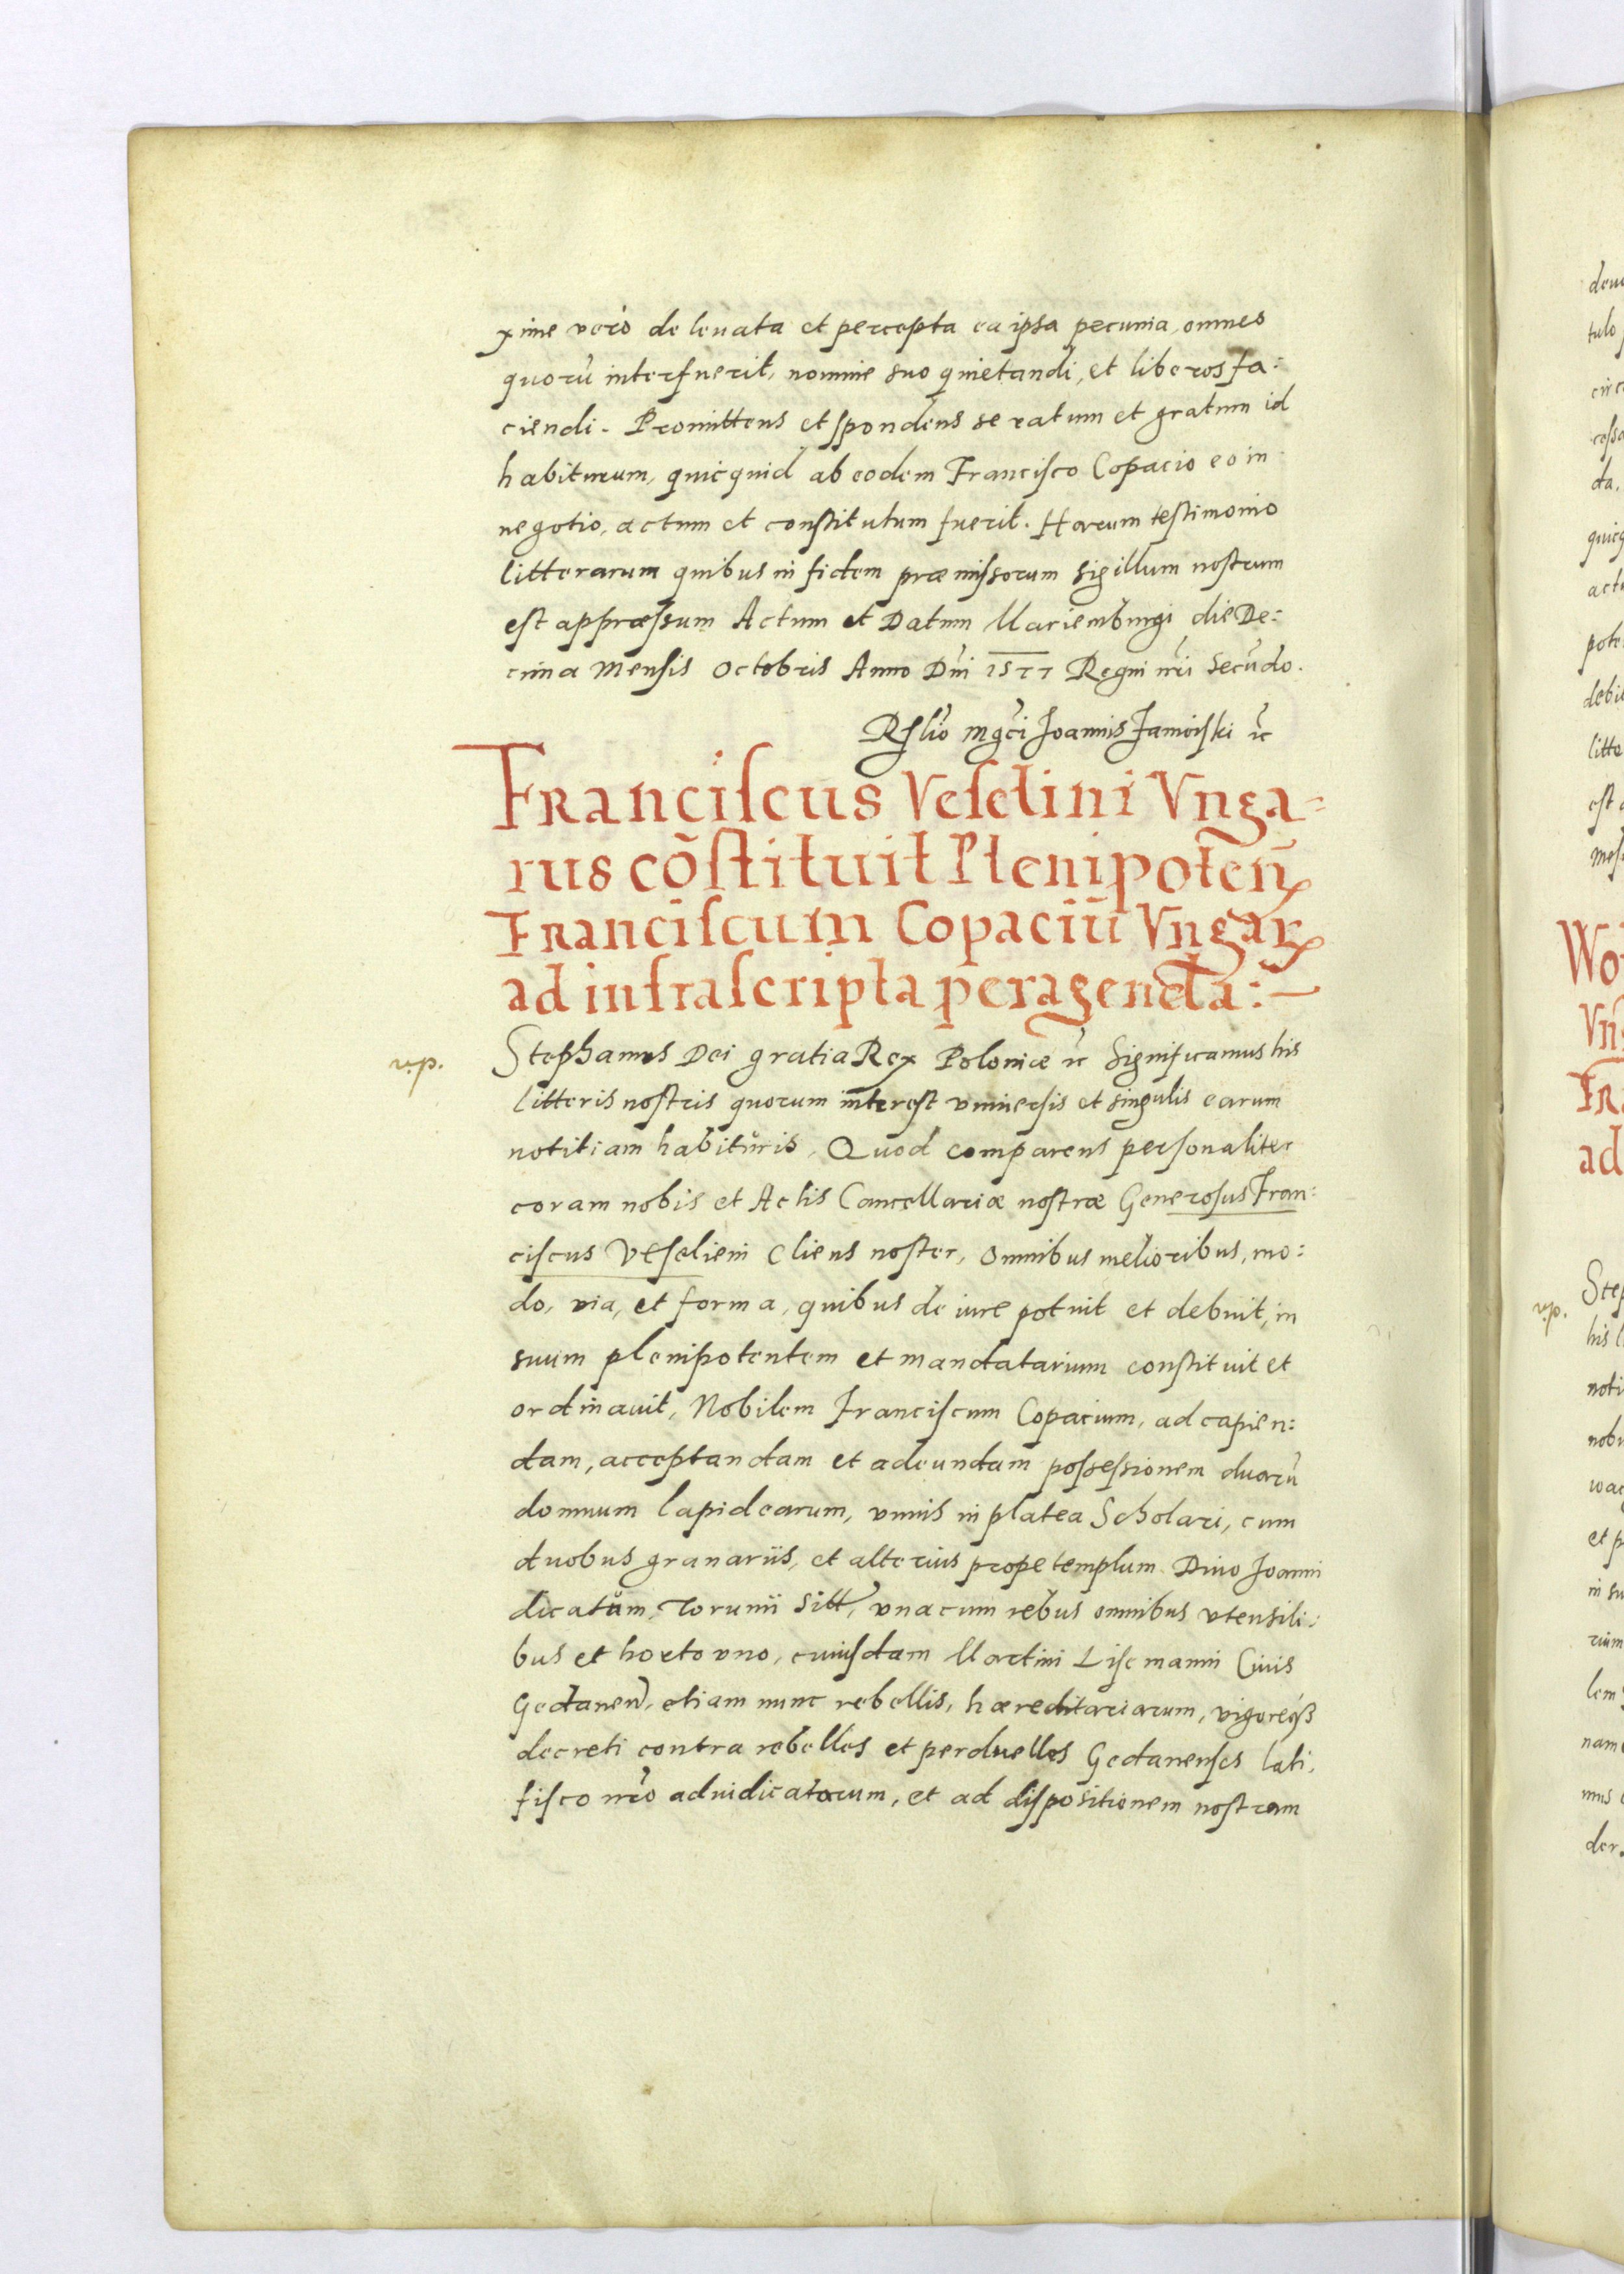 xime vero de leuata et percepta ea ipsa pecunia, omnes
quorũ interfuerit, nomine suo quietandi, et liberos fa:
ciendi. Promittens et spondens se ratum et gratum id
habiturum, quicquid ab eodem Francisco Copacio eo in
negotio, actum et constitutum fuerit. Harum testimonio
litterarum quibus in fidem præmissorum sigillum nostrum
est appræssum Actum et Datum Mariemburgi die De:
cima Mensis Octobris Anno Dñi 1577 Regni nr̃i Secũdo.
Rl̃io mgc̃i Joannis Zamoiski ꝛc̃
Franciscus Veselini Vnga-
rus cõstituit Plenipoteñ
Franciscum Copaciũ Vngar
ad infrascripta peragenda:—
Stephanus Dei gratia Rex Poloniæ ꝛc Significamus his
litteris nostris quorum interest vniuersis et singulis earum
notitiam habituris, Quod comparens personaliter
coram nobis et Actis Cancellariæ nostræ Generosus Fran:
ciscus Veselieni Cliens noster, omnibus melioribus, mo:
do, via, et forma, quibus de iure potuit et debuit, in
suum plenipotentem et mandatarium constituit et
ordinauit, Nobilem Franciscum Copacium, ad capien:
dam, acceptandam et adeundam possessionem duarũ
domuum lapidearum, vnius in platea Scholari, cum
duobus granariis, et alterius prope templum Diuo Joanni
dicatum, Torunii sitt, vna cum rebus omnibus vtensili:
bus et horto vno, cuiusdam Martini Lisemanni Ciuis
Gedaneñ, etiam nunc rebellis, hæreditariarum, vigore
decreti contra rebelles et perduelles Gedanenses lati,
fisco nr̃o adiudicatarum, et ad dispositionem nostram